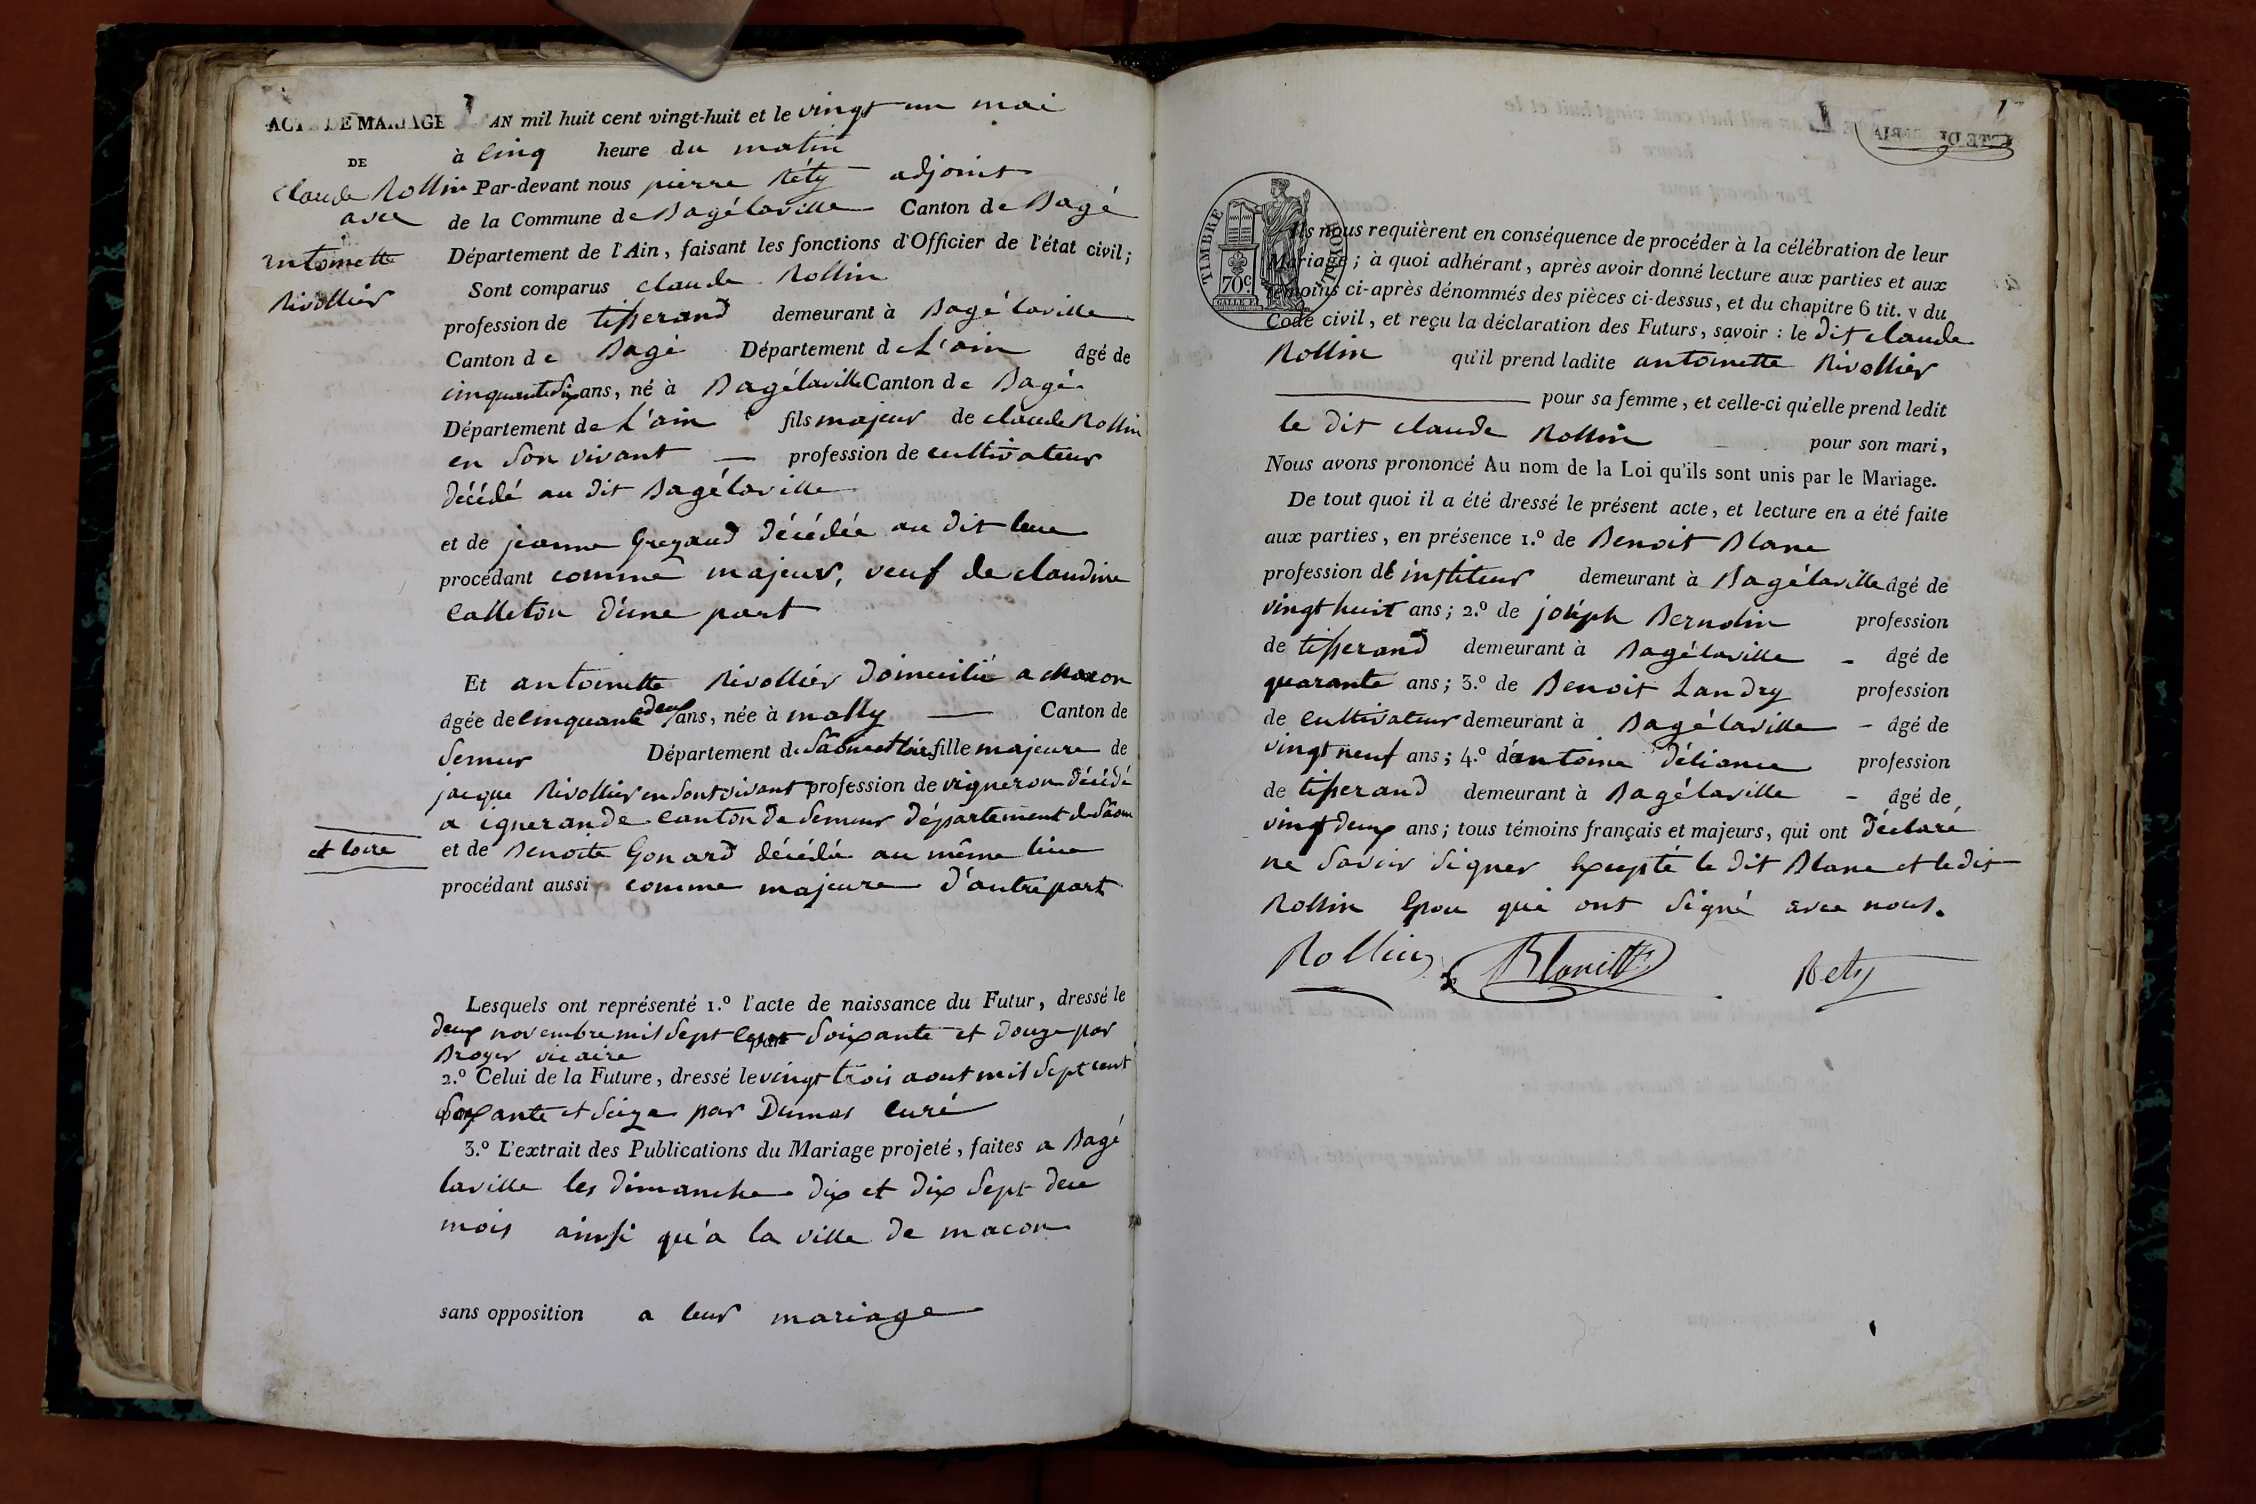 ACTE DE MARIAGE
DE
claude Rollin
avec
antoinette
Rivollier
L'AN mil huit cent vingt-huit et le vingt un mai
à cinq heure du matin
Par-devant nous pierre Réty adjoint
de la Commune de Bagélaville Canton de Bagé
Département de l'Ain, faisant les fonctions d'Officier de l'état civil;
Sont comparus claude Rollin
profession de tisserand demeurant à Bagélaville
Canton de Bagé Département de L'ain âgé de
cinquante six ans, né à Bagélaville Canton de Bagé
Département de L'ain fils majeur de claude Rollin
en son vivant — profession de cultivateur
décédé au dit Bagélaville
et de jeanne Grezaud décédée au dit lieu
procédant comme majeur, veuf de claudine
Calleton d'une part
Et antoinette Rivollier domicilié a macon
âgée de cinquante deux ans, née à mailly — Canton de
Semur Département de Sâone et loire fille majeure de
jacque Rivollier en sont vivant profession de vigneron décédé
a iguerande canton de Semur département de Sâone
et loire
et de Benoite Gonard décédée au même lieu
procédant aussi comme majeure d'autre part
Lesquels ont représenté 1.º l'acte de naissance du Futur, dressé le
deux novembre mil sept cent soixante et douze par
Broyer vicaire
2.º Celui de la Future, dressé le vingt trois aout mil sept cent
soixante et seize par Dumas curé
3.º L'extrait des Publications du Mariage projeté, faites a Bagé
laville les dimanche dix et dix sept dece
mois ainsi qu'a la ville de macon
sans opposition a leur mariage
TIMBRE ROYAL
70c.
Ils nous requièrent en conséquence de procéder à la célébration de leur
Mariage; à quoi adhérant, après avoir donné lecture aux parties et aux
témoins ci-après dénommés des pièces ci-dessus, et du chapitre 6 tit. v du
Code civil, et reçu la déclaration des Futurs, savoir : le dit claude
Rollin qu'il prend ladite antoinette Rivollier
— pour sa femme, et celle-ci qu'elle prend ledit
le dit claude Rollin pour son mari,
Nous avons prononcé Au nom de la Loi qu'ils sont unis par le Mariage.
De tout quoi il a été dressé le présent acte, et lecture en a été faite
aux parties, en présence 1.º de Benoit Blanc
profession de institeur demeurant à Bagélaville âgé de
vingt huit ans; 2.º de joseph Bernolin profession
de tisserand demeurant à Bagélaville - âgé de
quarante ans; 3.º de Benoit Landry profession
de cultivateur demeurant à Bagélaville - âgé de
vingt neuf ans; 4.º de antoine déliance profession
de tisserand demeurant à Bagélaville - âgé de
vingt deux ans; tous témoins français et majeurs, qui ont déclaré
ne savoir signer Excepté le dit Blanc et le dit
Rollin Epou qui ont signé avec nous.
Rollin Rety